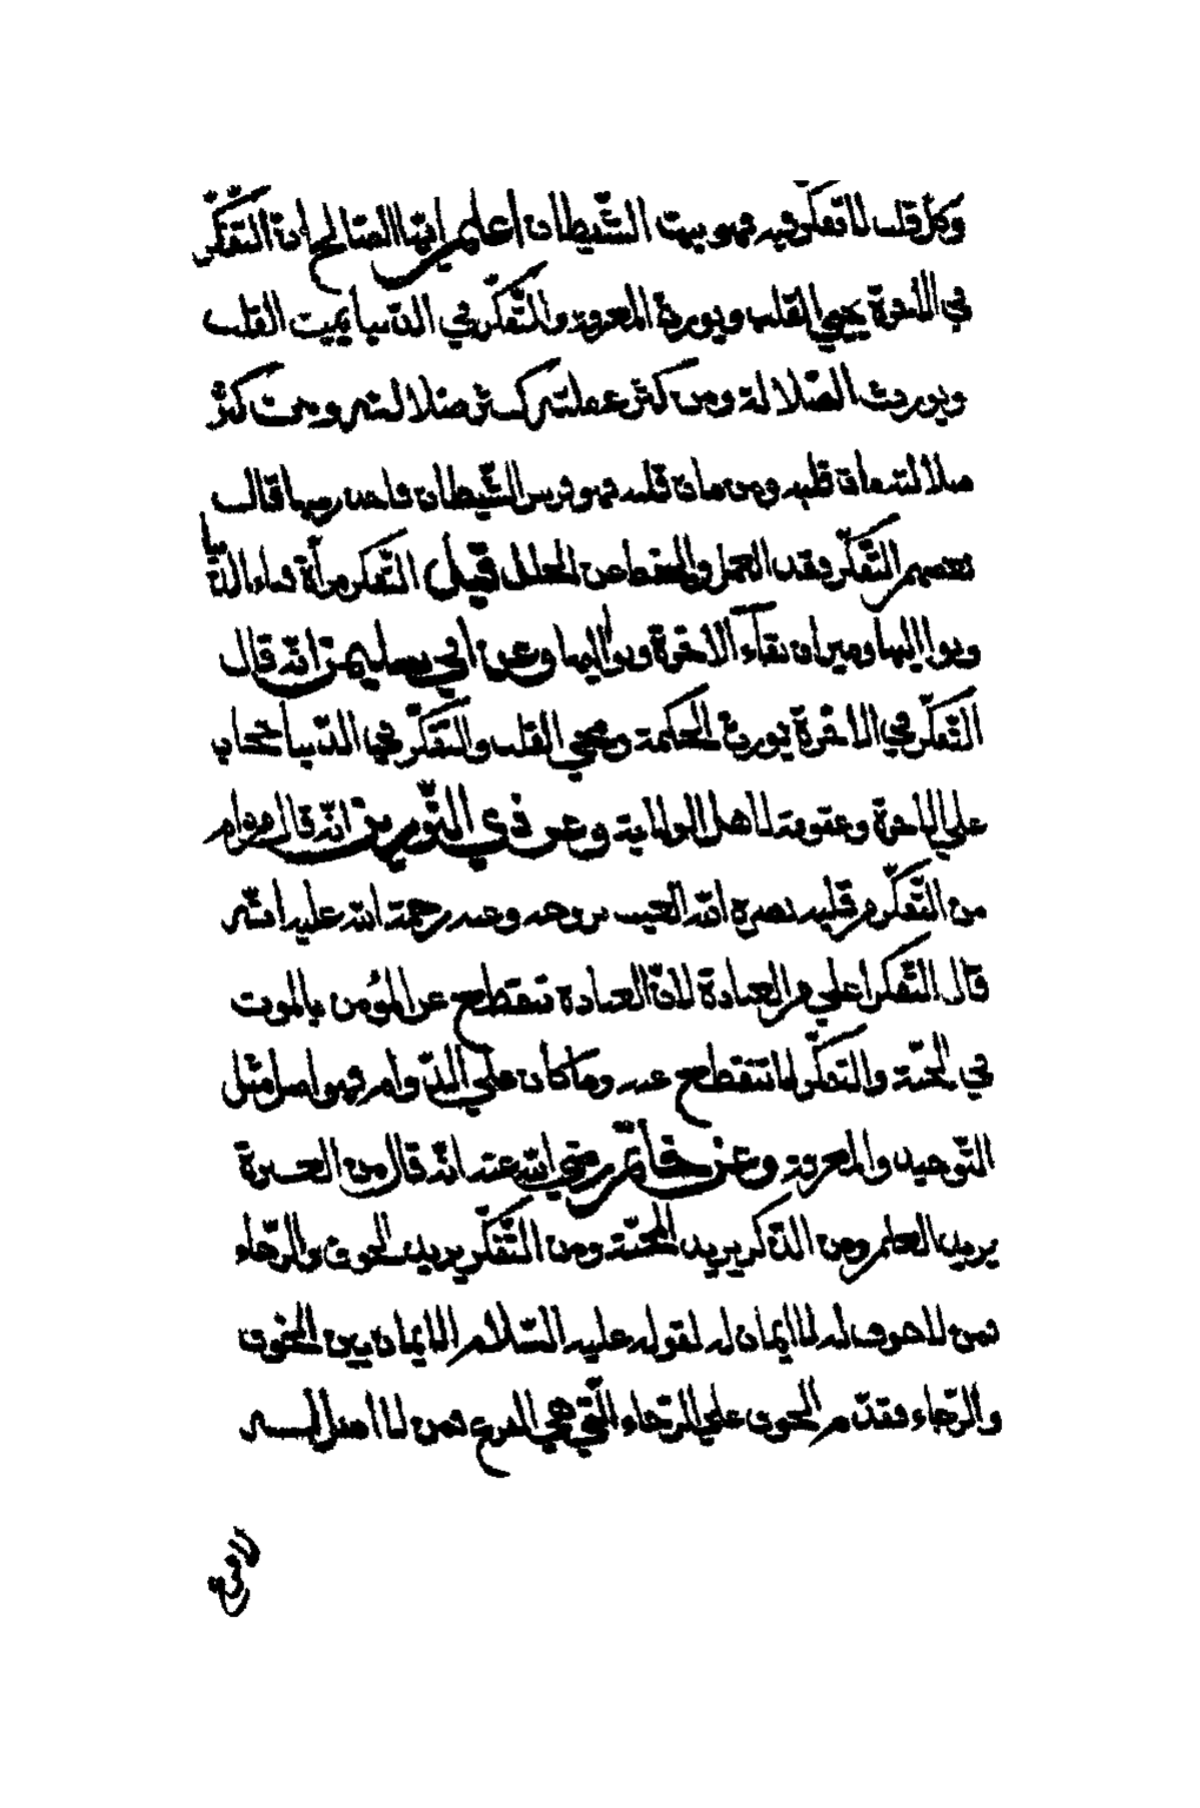 وكل قلب لا تفكّر فيه فهو بيت الشّيطان اعلم ايّها الصّالح أنّ التّفكّر
في الآخرة يحيي القلب ويورث المعرفة والتّفكّر في الدّنيا يميت القلب
ويورث الضّلالة ومن كثر غفلته كثر ضلالته ومن كثر
ضلالته مات قلبه ومن مات قلبه فهو فرس الشّيطان قال
بعضهم التّفكّر فقد العمل عن الخلل قيل التّفكر مرآة فناء الدّنيا
وزواليها وميزان بقاء الآخرة ونواليها وعن ابي سليمن انّه قال
التّفكّر في الآخرة يورث الحكمة ويحيي القلب والتّفكّر في الدّنيا حجاب
علي الآخرة وعقوبة لاهل الولاية وعن ذي النّورين انّه قال
من التّفكّر قلبه رحمة الله عليه انّه
قال التّفكر اعلي من العبادة لانّ العبادة تنقطع عن المؤمن بالموت
في الجنّة والتفكّر لا تنقطع عنه وما كان علي الدّوام فهو اصل مثل
التّوحيد والمعرفة وعن حاتم رضي الله عنه انّه قال من العبرة
يزيد العلم ومن الذّكر يزيد المحبّة ومن التّفكّر يزيد الخوف والرّجاء
فمن لا خوف له لا ايمان له لقوله عليه السّلام الايمان بين الخوف
والرّجاء فقدّم الخوف علي الرّجاء الّتي هي الفرع فمن لا اصل له